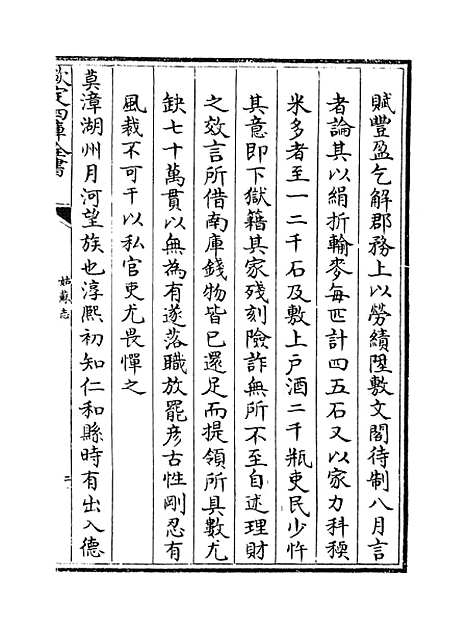 賦豐盈乞解郡務上以勞績陞敷文閣待制八月言
者論其以絹折輸麥每匹計四五石又以家力科糯
米多者至一二千石及敷上戶酒二千瓶吏民少忤
其意即下獄籍其家殘刻險詐無所不至自述理財
之效言所借南庫錢物皆已還足而提領所具數尤
缺七十萬貫以無為有遂落職放罷彥古性剛忍有
風裁不可干以私官吏尤畏憚之
莫漳湖州月河望族也淳熈初知仁和縣時有出入德
欽定四庫全書
姑蘇志